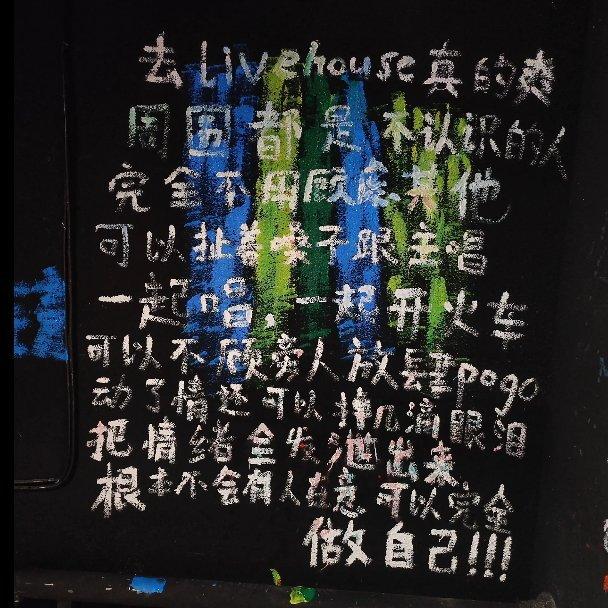 去Livehouse真的爽
周围都是不认识的人
完全不用顾忌其他
可以扯着嗓子跟主唱
一起唱,一起开火车
可以不顾旁人放肆pogo
动了情还可以掉几滴眼泪
把情绪全发泄出来
根本不会有人在意可以完全
做自己!!!